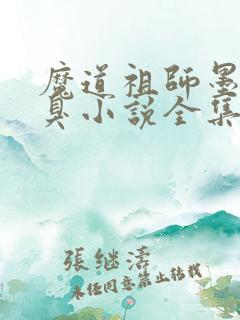 魔道祖師墨
臭小說全集
張继濤
未经同意禁止转载